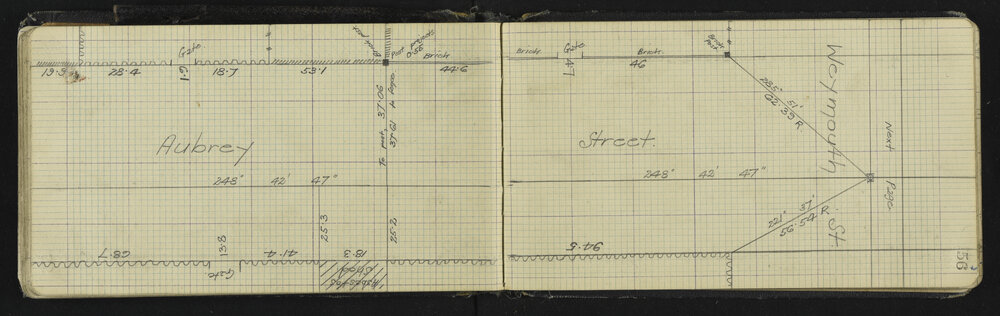 19.9 28.4 Gate 6.1 18.7 53.1
Brick Post
Post projects 0.55
Brick
44.6
Brick Gate 4.7 Brick
46
Brick Post
To post, 37.06
37.61 to face
Aubrey Street.
Weymouth St.
285° 51'
62.39 R.
Next Page
248° 42' 47"
248° 42' 47"
221° 37'
56.54 R.
68.7 13.8 Gate 41.4 25.3 18.3 25.2
94.5
Asbestos Shed
58